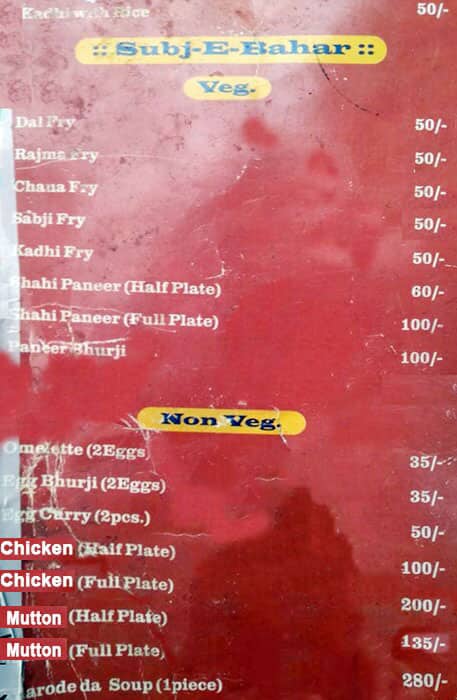 Kadhi with Rice 50/-
:: Subj-E-Bahar ::
Veg.
Dal Fry 50/-
Rajma Fry 50/-
Chana Fry 50/-
Sabji Fry 50/-
Kadhi Fry 50/-
Shahi Paneer (Half Plate) 60/-
Shahi Paneer (Full Plate) 100/-
Paneer Bhurji 100/-
Non Veg.
Omelette (2Eggs 35/-
Egg Bhurji (2Eggs) 35/-
Egg Curry (2pcs.) 50/-
Chicken (Half Plate) 100/-
Chicken (Full Plate) 200/-
Mutton (Half Plate) 135/-
Mutton (Full Plate) 280/-
arode da Soup (1piece)